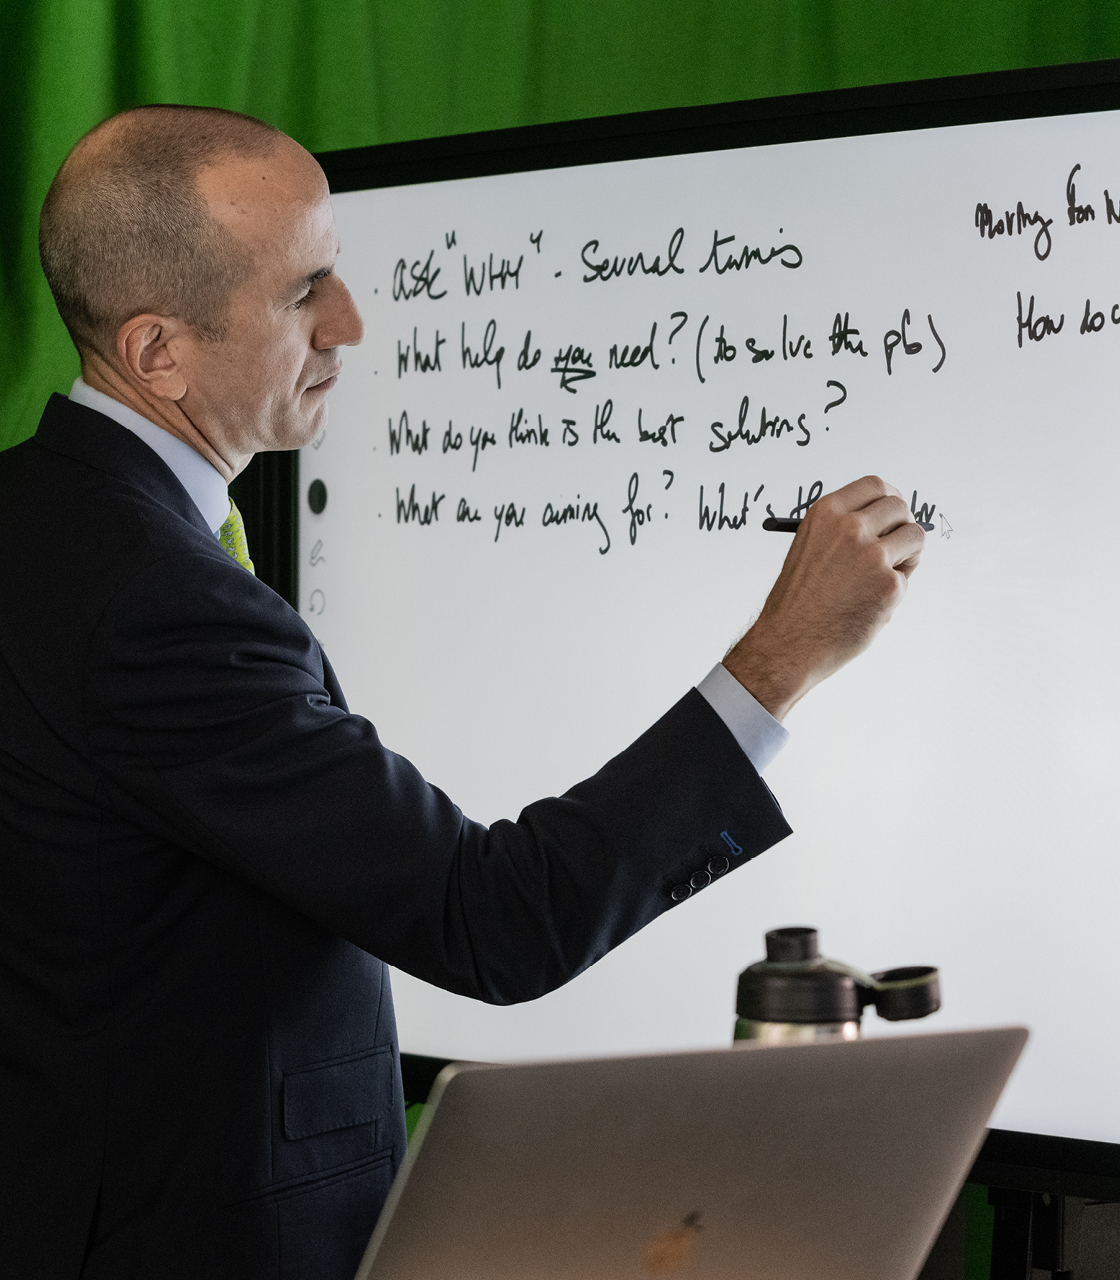 . Ask "WHY" - Several times
. What help do you need? (to solve the pb)
. What do you think is the best solutions?
. What are you aiming for? What's
How do